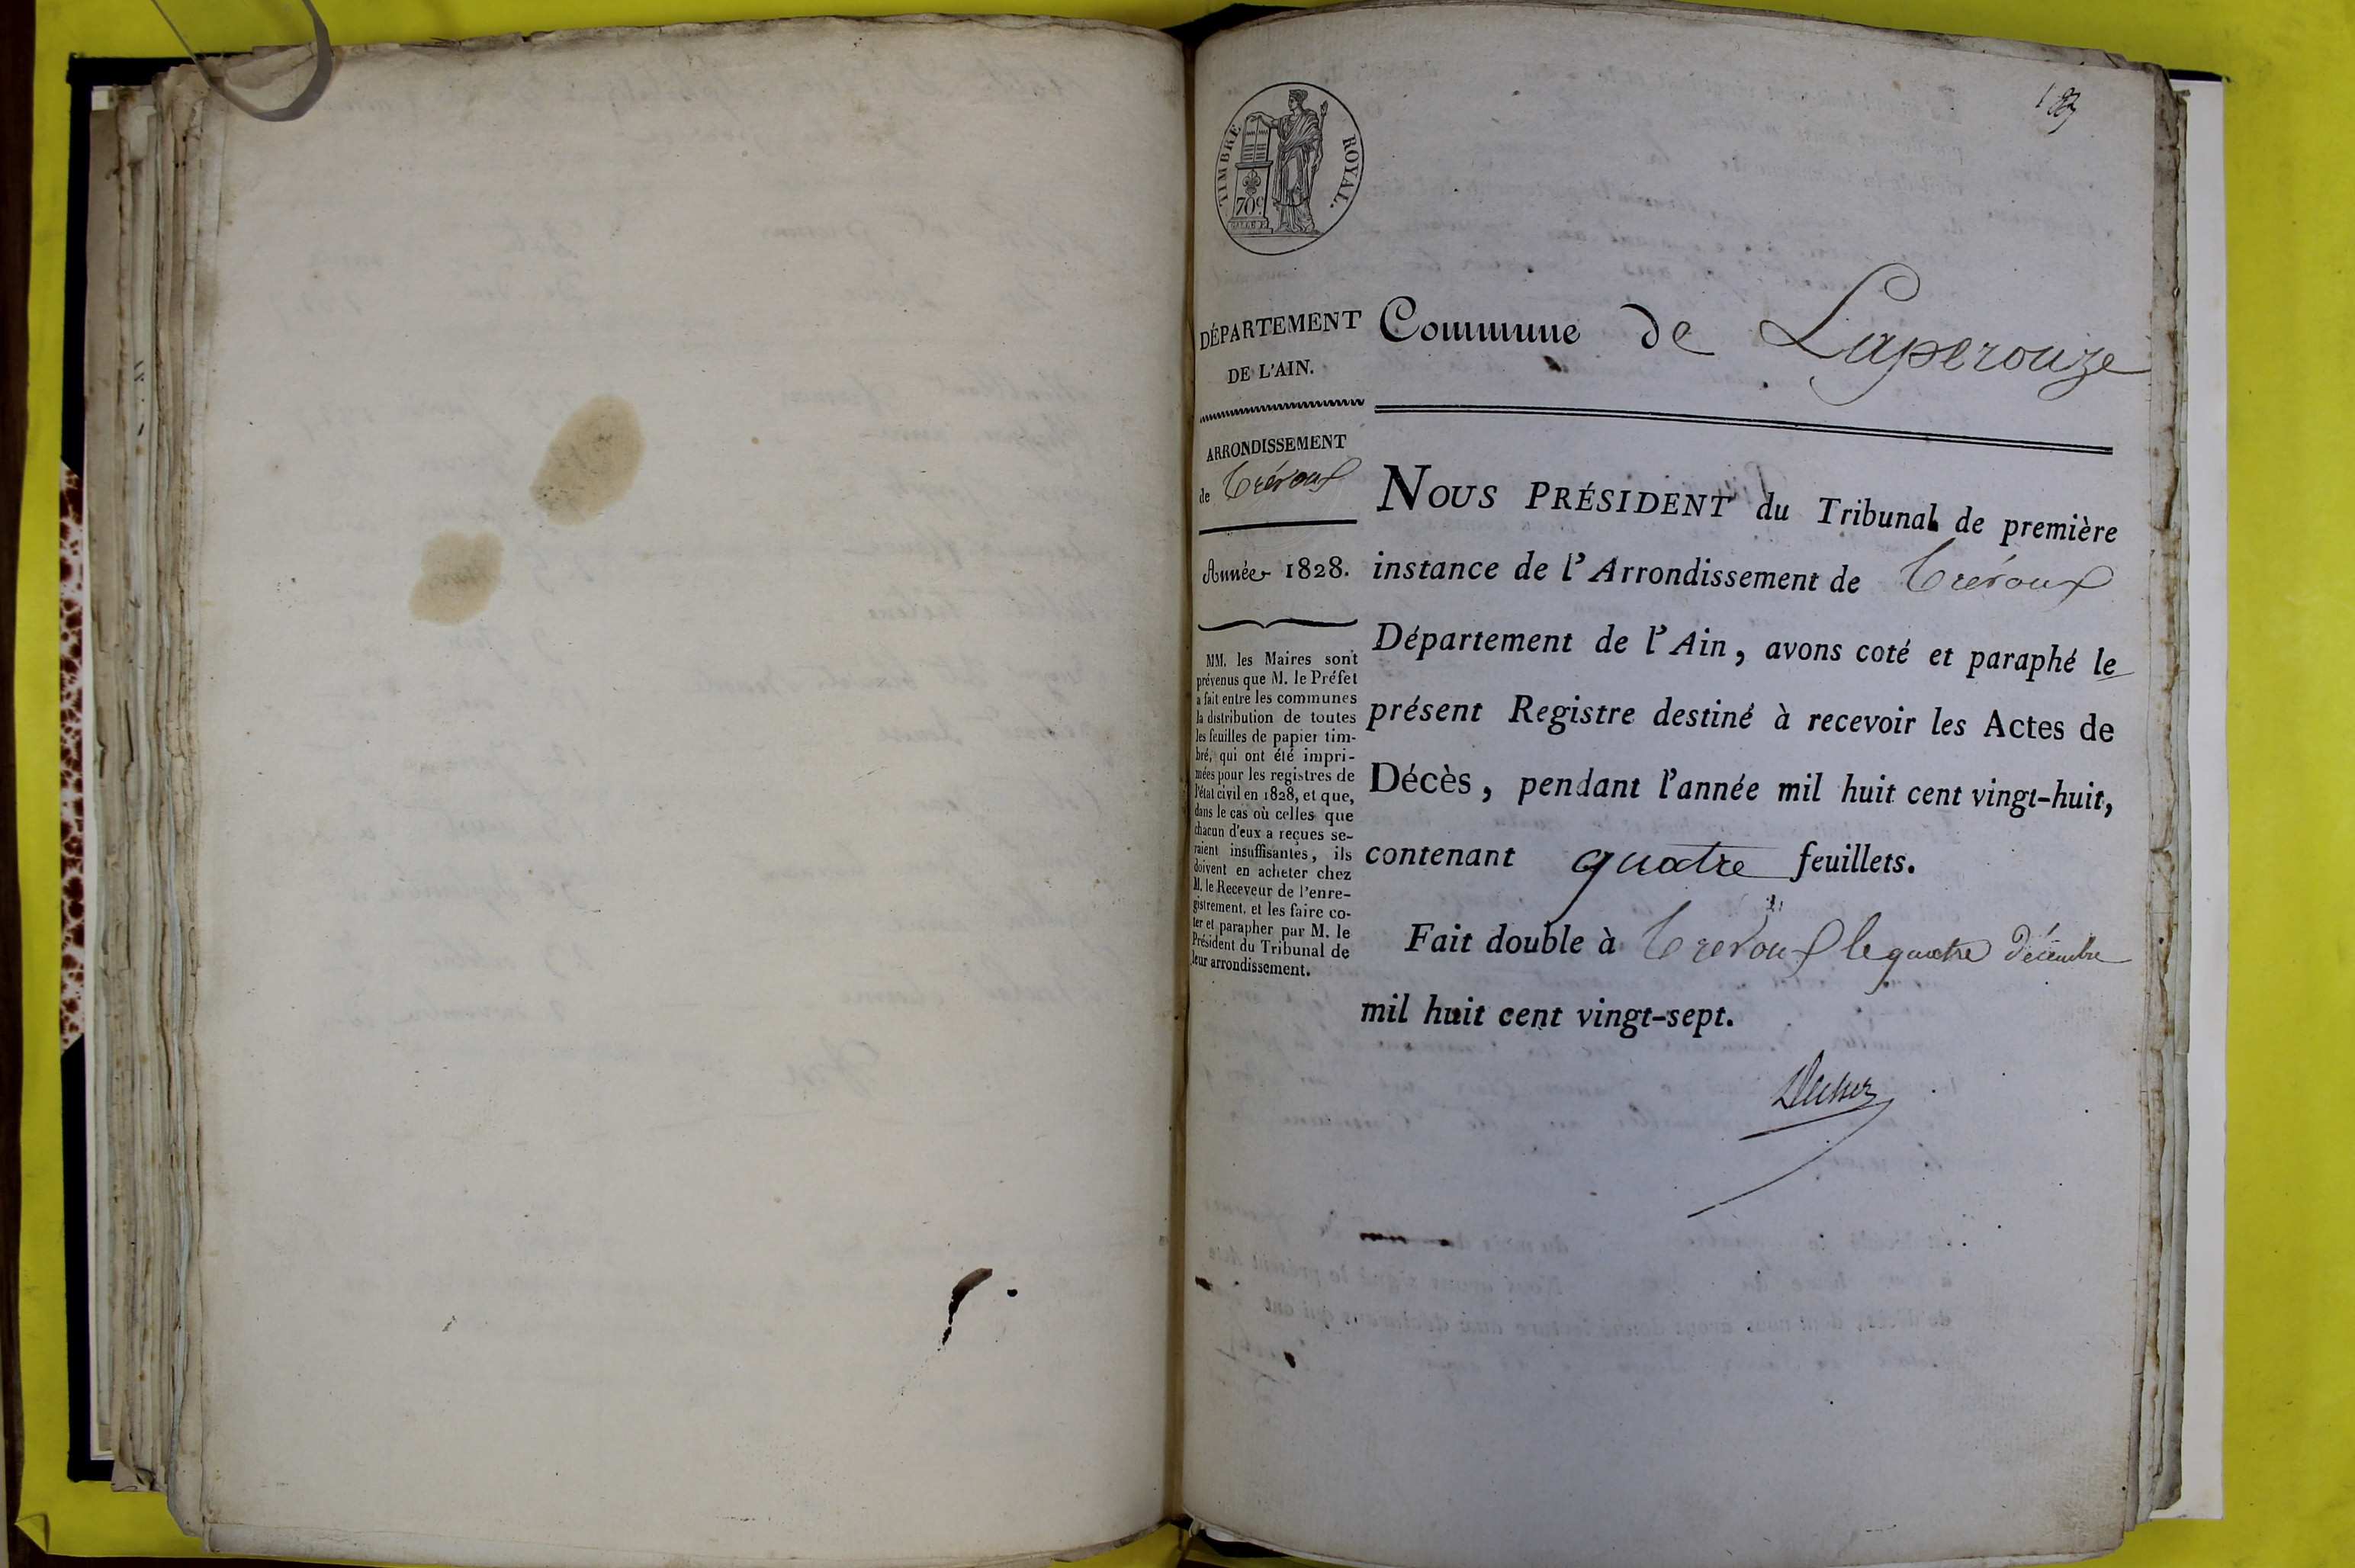 TIMBRE ROYAL.
70c
DÉPARTEMENT
DE L'AIN.
ARRONDISSEMENT
de Trévoux
Année 1828.
MM. les Maires sont
prévenus que M. le Préfet
a fait entre les communes
la distribution de toutes
les feuilles de papier tim-
bré, qui ont été impri-
mées pour les registres de
l'état civil en 1828, et que,
dans le cas où celles que
chacun d'eux a reçues se-
raient insuffisantes, ils
doivent en acheter chez
M. le Receveur de l'enre-
gistrement, et les faire co-
ter et parapher par M. le
Président du Tribunal de
leur arrondissement.
Commune de Laperouze
NOUS PRÉSIDENT du Tribunal de première
instance de l'Arrondissement de Trévoux
Département de l'Ain, avons coté et paraphé le
présent Registre destiné à recevoir les Actes de
Décès, pendant l'année mil huit cent vingt-huit,
contenant quatre feuillets.
Fait double à Trevoux le quatre décembre
mil huit cent vingt-sept.